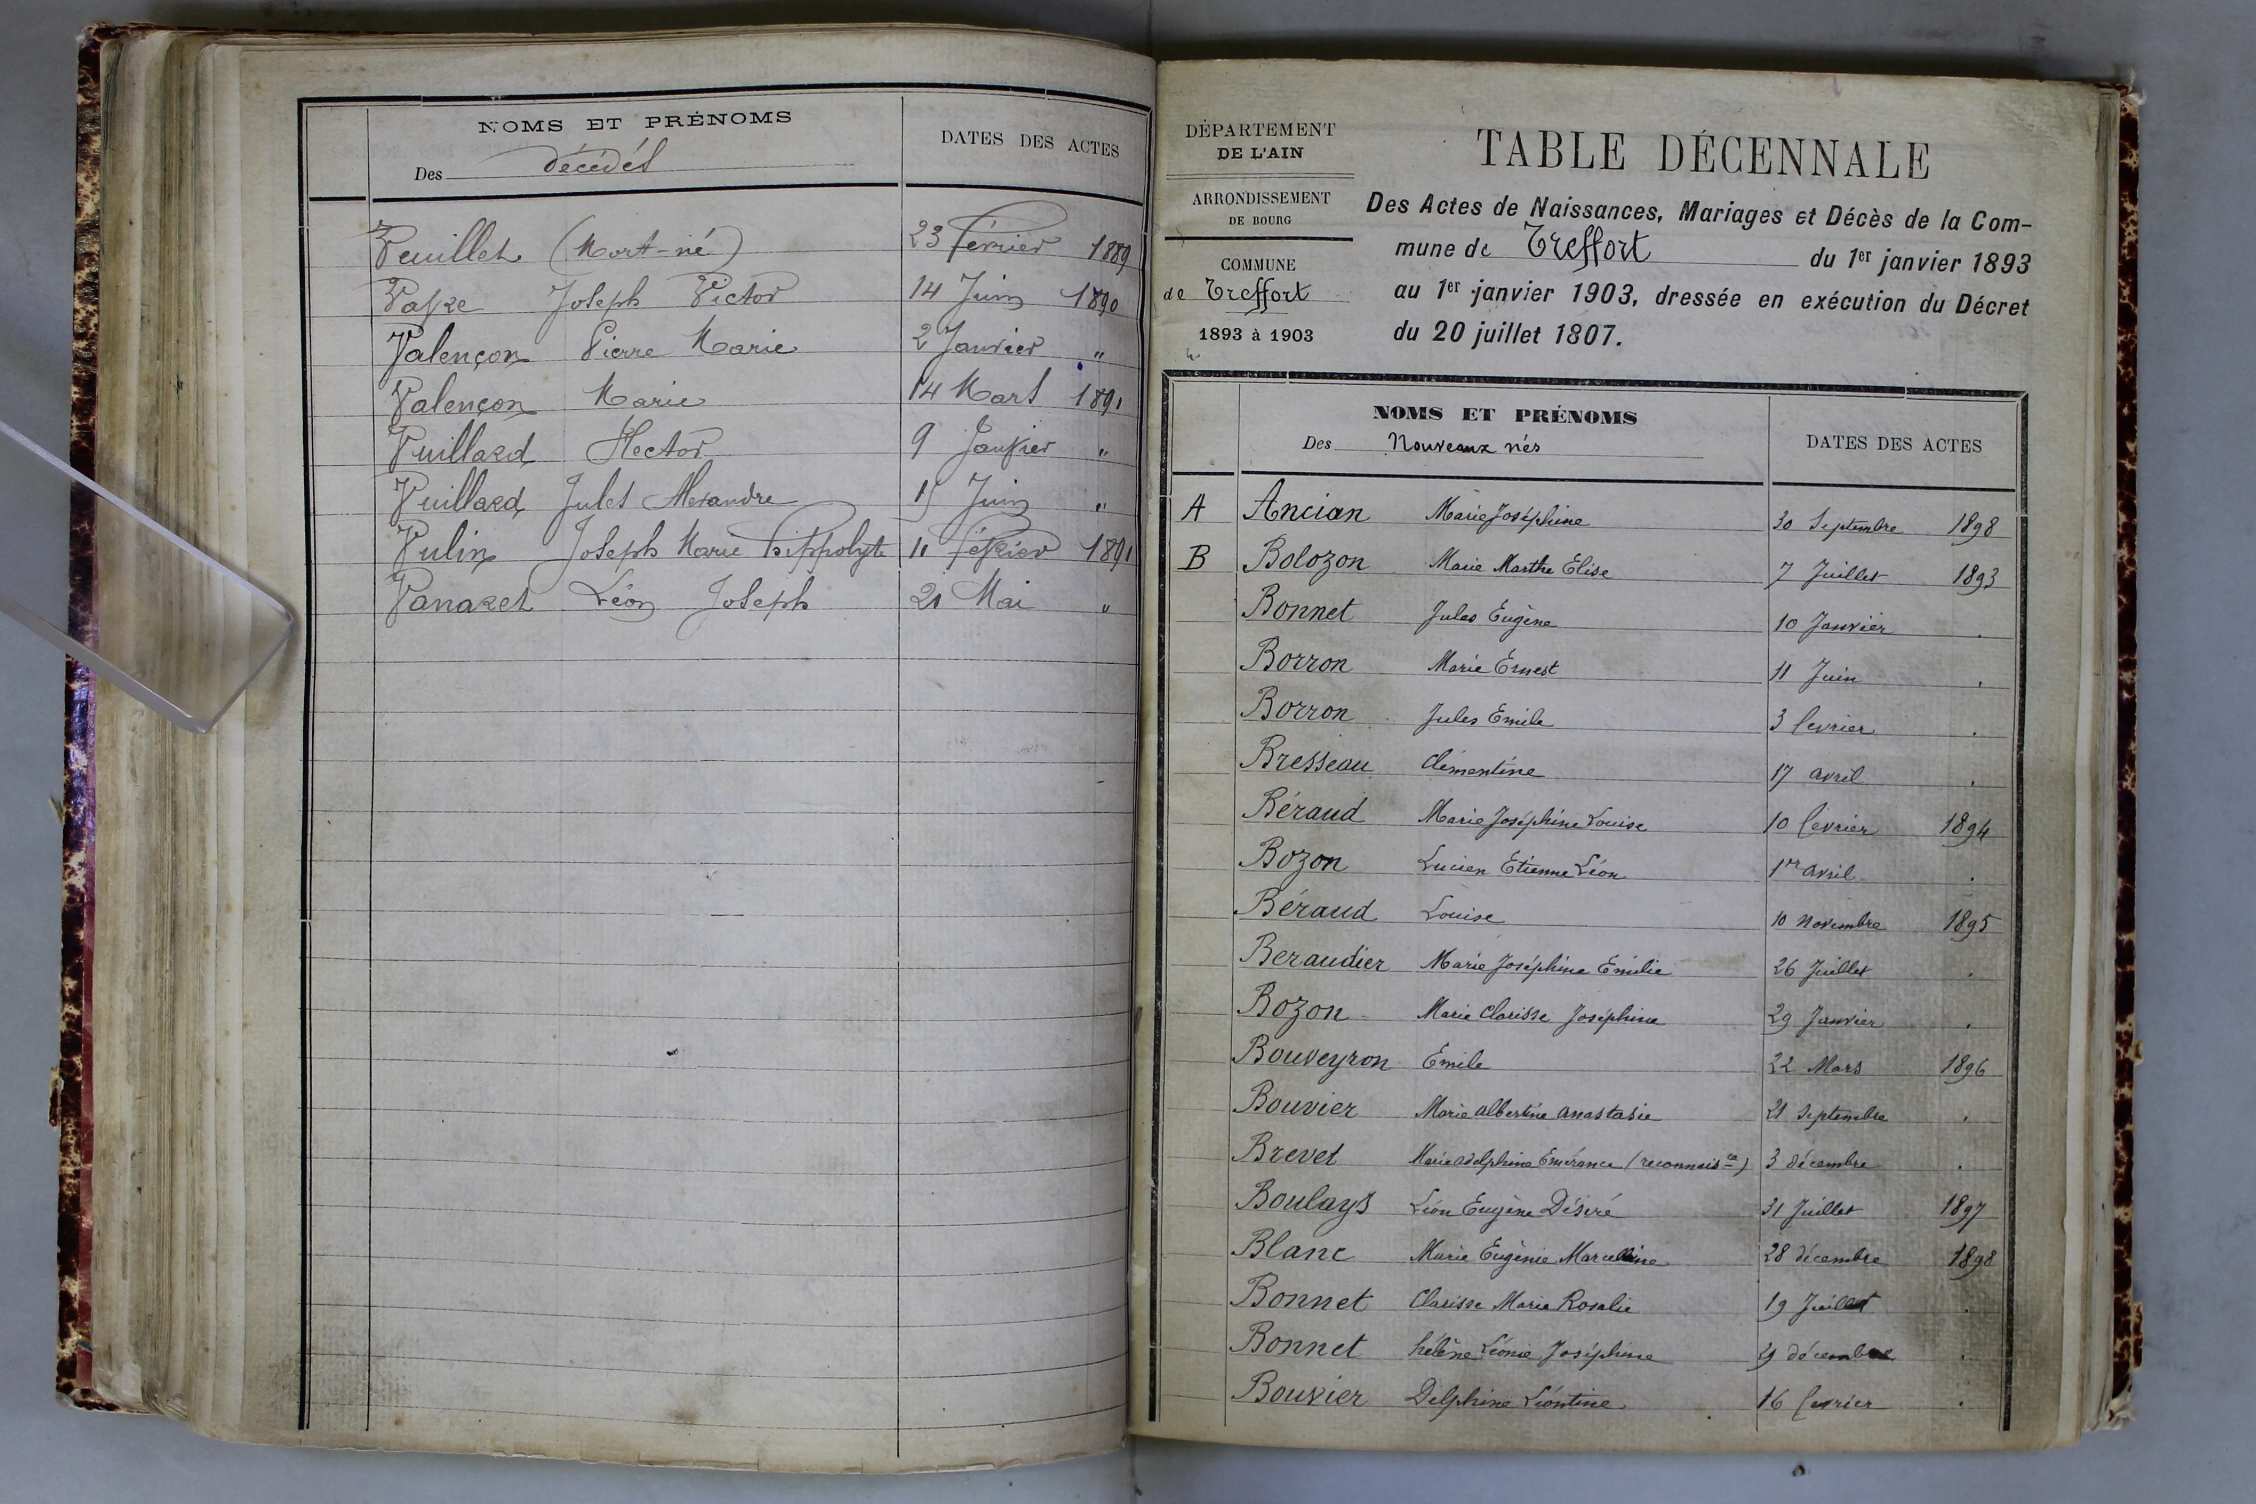 NOMS ET PRÉNOMS
Des décédés
DATES DES ACTES
Vuillet (Mort-né) 23 février 1889
Joseph Victor 14 Juin 1890
Valençon Pierre Marie 2 Janvier "
Valençon Marie 14 Mars 1891
Vuillard Hector 9 Janvier "
Vuillard Jules Alexandre 15 Juin "
Vulin Joseph Marie hippolyte 11 février 1891
Vanaret Léon Joseph 21 Mai "
DÉPARTEMENT
DE L'AIN
ARRONDISSEMENT
DE BOURG
COMMUNE
de Treffort
1893 à 1903
TABLE DÉCENNALE
Des Actes de Naissances, Mariages et Décès de la Com-
mune de Treffort du 1er janvier 1893
au 1er janvier 1903, dressée en exécution du Décret
du 20 juillet 1807.
NOMS ET PRÉNOMS
Des Nouveaux nés
DATES DES ACTES
A Ancian Marie Joséphine 30 Septembre 1898
B Bolozon Marie Marthe Elise 7 Juillet 1893
Bonnet Jules Eugène 10 Janvier .
Borron Marie Ernest 11 Juin .
Borron Jules Emile 3 fevrier .
Bresseau Clémentine 17 avril .
Béraud Marie Joséphine Louise 10 fevrier 1894
Bozon Lucien Etienne Léon 1er avril .
Béraud Louise 10 Novembre 1895
Beraudier Marie Joséphine Emilie 26 Juillet .
Bozon Marie Clarisse Joséphine 29 Janvier .
Bouveyron Émile 22 Mars 1896
Bouvier Marie albertine anastasie 21 Septembre .
Brevet Marie adelphine Emérance (reconnaisce) 3 décembre .
Boulays Léon Eugène Désiré 31 Juillet 1897
Blanc Marie Eugènie Marcelline 28 décembre 1898
Bonnet Clarisse Marie Rosalie 19 Juillet .
Bonnet hélène Léonie Joséphine 29 décembre .
Bouvier Delphine Léontine 16 fevrier .